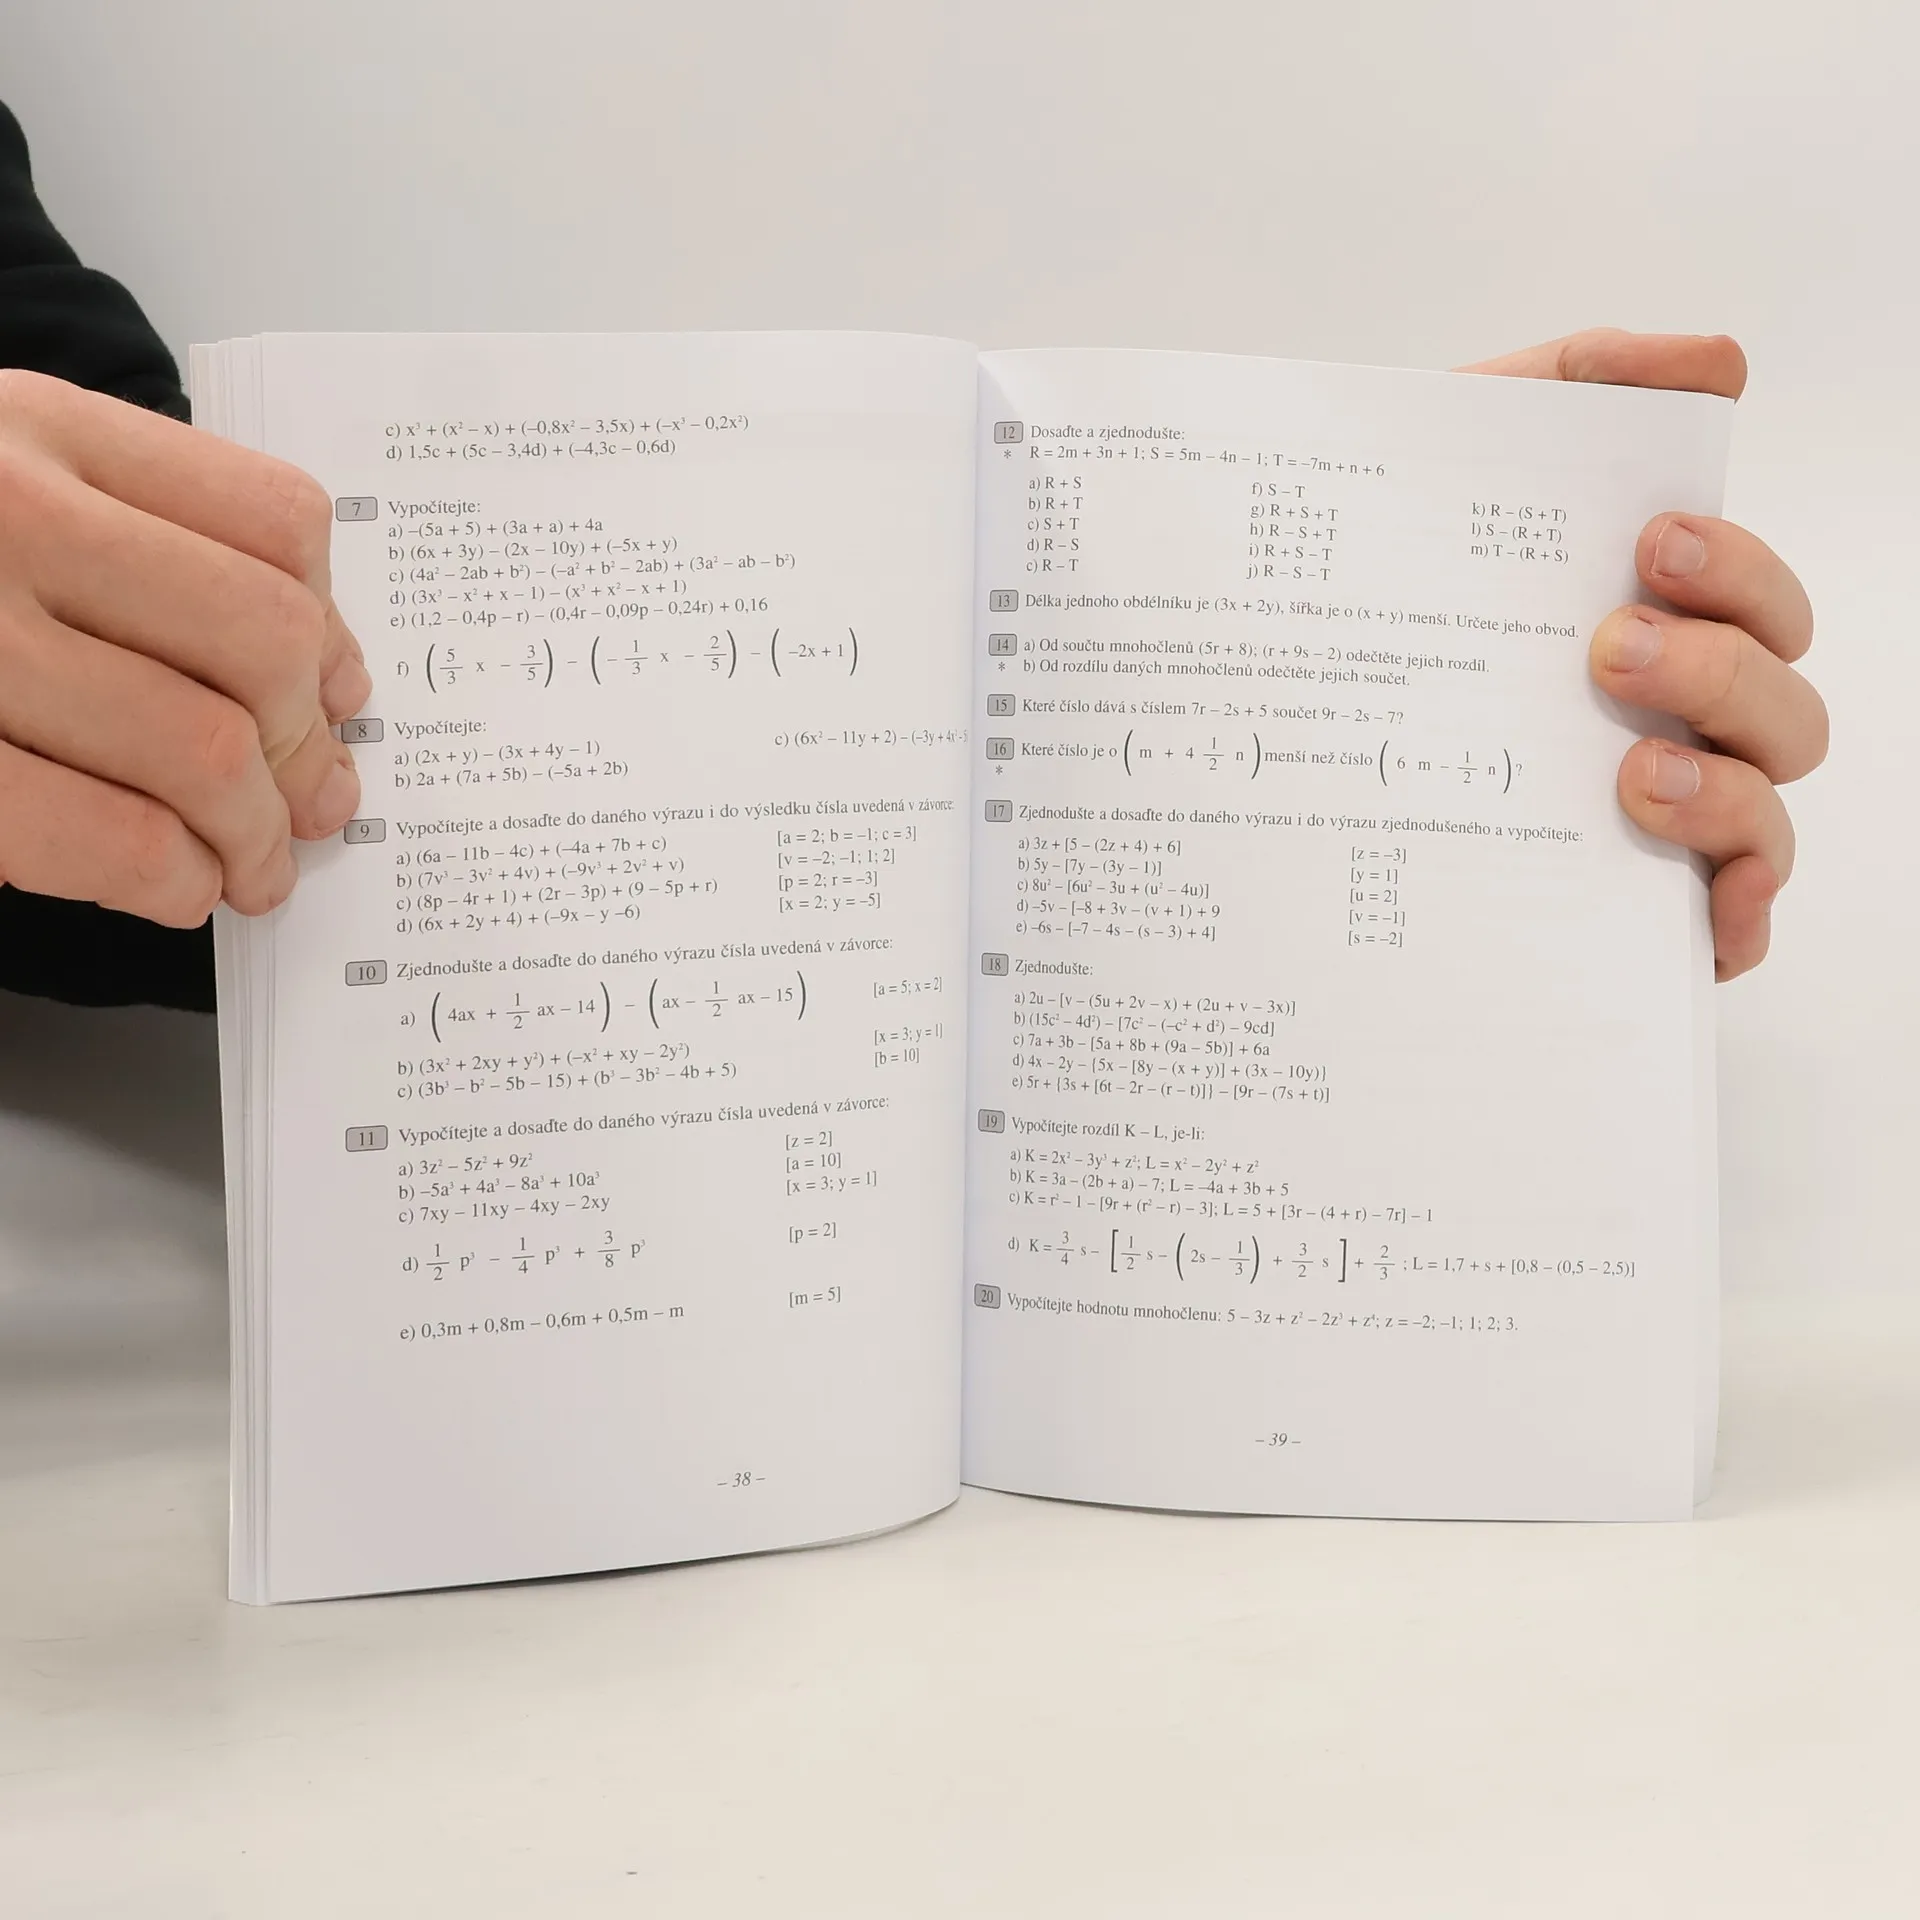 c) x³ + (x² – x) + (–0,8x² – 3,5x) + (–x³ – 0,2x²)
d) 1,5c + (5c – 3,4d) + (–4,3c – 0,6d)
7 Vypočítejte:
a) –(5a + 5) + (3a + a) + 4a
b) (6x + 3y) – (2x – 10y) + (–5x + y)
c) (4a² – 2ab + b²) – (–a² + b² – 2ab) + (3a² – ab – b²)
d) (3x³ – x² + x – 1) – (x³ + x² – x + 1)
e) (1,2 – 0,4p – r) – (0,4r – 0,09p – 0,24r) + 0,16
f) (5/3 x – 3/5) – (– 1/3 x – 2/5) – (–2x + 1)
8 Vypočítejte:
a) (2x + y) – (3x + 4y – 1) c) (6x² – 11y + 2) – (–3y + 4x² – 5
b) 2a + (7a + 5b) – (–5a + 2b)
9 Vypočítejte a dosaďte do daného výrazu i do výsledku čísla uvedená v závorce:
a) (6a – 11b – 4c) + (–4a + 7b + c) [a = 2; b = –1; c = 3]
b) (7v³ – 3v² + 4v) + (–9v³ + 2v² + v) [v = –2; –1; 1; 2]
c) (8p – 4r + 1) + (2r – 3p) + (9 – 5p + r) [p = 2; r = –3]
d) (6x + 2y + 4) + (–9x – y –6) [x = 2; y = –5]
10 Zjednodušte a dosaďte do daného výrazu čísla uvedená v závorce:
a) (4ax + 1/2 ax – 14) – (ax – 1/2 ax – 15) [a = 5; x = 2]
b) (3x² + 2xy + y²) + (–x² + xy – 2y²) [x = 3; y = 1]
c) (3b³ – b² – 5b – 15) + (b³ – 3b² – 4b + 5) [b = 10]
11 Vypočítejte a dosaďte do daného výrazu čísla uvedená v závorce:
a) 3z² – 5z² + 9z² [z = 2]
b) –5a³ + 4a³ – 8a³ + 10a³ [a = 10]
c) 7xy – 11xy – 4xy – 2xy [x = 3; y = 1]
d) 1/2 p³ – 1/4 p³ + 3/8 p³ [p = 2]
e) 0,3m + 0,8m – 0,6m + 0,5m – m [m = 5]
– 38 –
12 Dosaďte a zjednodušte:
* R = 2m + 3n + 1; S = 5m – 4n – 1; T = –7m + n + 6
a) R + S
b) R + T
c) S + T
d) R – S
e) R – T
f) S – T
g) R + S + T
h) R – S + T
i) R + S – T
j) R – S – T
k) R – (S + T)
l) S – (R + T)
m) T – (R + S)
13 Délka jednoho obdélníku je (3x + 2y), šířka je o (x + y) menší. Určete jeho obvod.
14 a) Od součtu mnohočlenů (5r + 8); (r + 9s – 2) odečtěte jejich rozdíl.
* b) Od rozdílu daných mnohočlenů odečtěte jejich součet.
15 Které číslo dává s číslem 7r – 2s + 5 součet 9r – 2s – 7?
16 Které číslo je o (m + 4 1/2 n) menší než číslo (6 m – 1/2 n)?
*
17 Zjednodušte a dosaďte do daného výrazu i do výrazu zjednodušeného a vypočítejte:
a) 3z + [5 – (2z + 4) + 6] [z = –3]
b) 5y – [7y – (3y – 1)] [y = 1]
c) 8u² – [6u² – 3u + (u² – 4u)] [u = 2]
d) –5v – [–8 + 3v – (v + 1) + 9 [v = –1]
e) –6s – [–7 – 4s – (s – 3) + 4] [s = –2]
18 Zjednodušte:
a) 2u – [v – (5u + 2v – x) + (2u + v – 3x)]
b) (15c² – 4d²) – [7c² – (–c² + d²) – 9cd]
c) 7a + 3b – [5a + 8b + (9a – 5b)] + 6a
d) 4x – 2y – {5x – [8y – (x + y)] + (3x – 10y)}
e) 5r + {3s + [6t – 2r – (r – t)]} – [9r – (7s + t)]
19 Vypočítejte rozdíl K – L, je-li:
a) K = 2x² – 3y³ + z²; L = x² – 2y² + z²
b) K = 3a – (2b + a) – 7; L = –4a + 3b + 5
c) K = r² – 1 – [9r + (r² – r) – 3]; L = 5 + [3r – (4 + r) – 7r] – 1
d) K = 3/4 s – [1/2 s – (2s – 1/3) + 3/2 s] + 2/3 ; L = 1,7 + s + [0,8 – (0,5 – 2,5)]
20 Vypočítejte hodnotu mnohočlenu: 5 – 3z + z² – 2z³ + z⁴; z = –2; –1; 1; 2; 3.
– 39 –